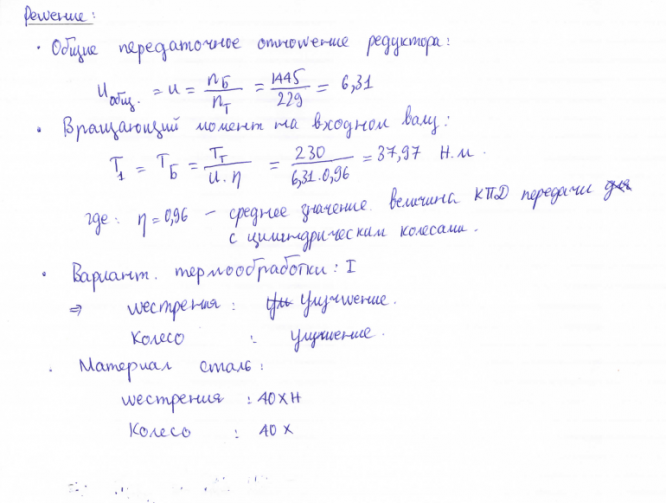 Решение:
• Общие передаточное отношение редуктора:
u общ. = u = nБ / nТ = 1445 / 229 = 6,31
• Вращающий момент на входном валу:
T1 = TБ = TТ / u.η = 230 / 6,31.0,96 = 37,97 Н.м.
где: η = 0,96 – среднее значение величина КПД передачи для
с цилиндрическим колесами.
• Вариант. термообработки: I
⇒ шестрения: улучшение.
Колесо : улучшение.
. Материал сталь:
шестрения : 40ХН
Колесо : 40Х